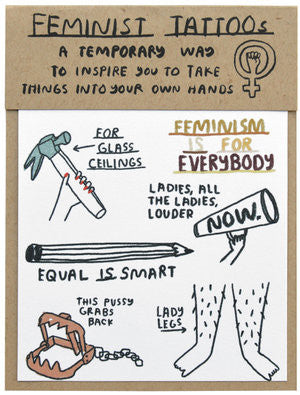 FEMINIST TATTOOS
A TEMPORARY WAY
TO INSPIRE YOU TO TAKE
THINGS INTO YOUR OWN HANDS
FOR
GLASS
CEILINGS
FEMINISM
IS FOR
EVERYBODY
LADIES, ALL
THE LADIES,
LOUDER
NOW.
EQUAL IS SMART
THIS PUSSY
GRABS
BACK
LADY
LEGS